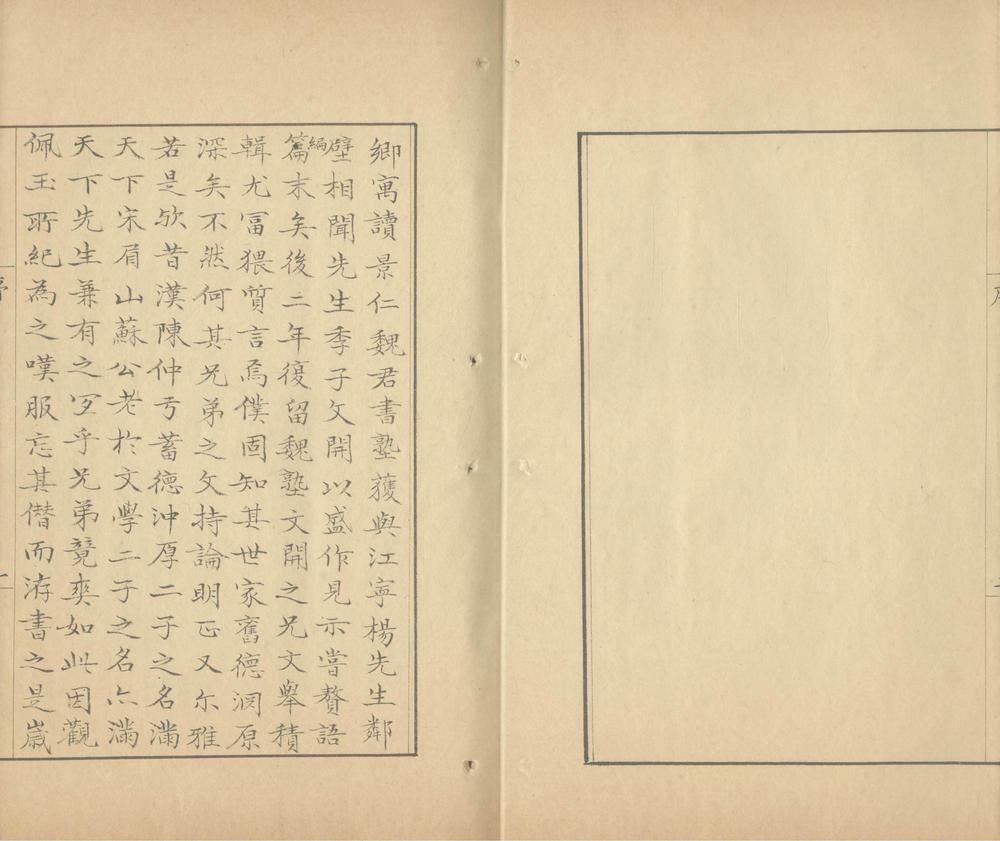 卿寓讀景仁魏君書塾獲與江寧楊先生鄰
壁相聞先生季子文開以盛作見示嘗贅語
編
篇末矣後二年復留魏塾文開之兄文舉積
輯尤冨猥質言焉僕固知其世家舊德淵原
深矣不然何其兄弟之文持論明正又尓雅
若是欤昔漢陳仲弓蓄德沖厚二子之名滿
天下宋眉山蘇公老於文學二子之名亦滿
天下先生兼有之冝乎兄弟競爽如此因觀
佩玉所紀為之嘆服忘其僭而洊書之是歲